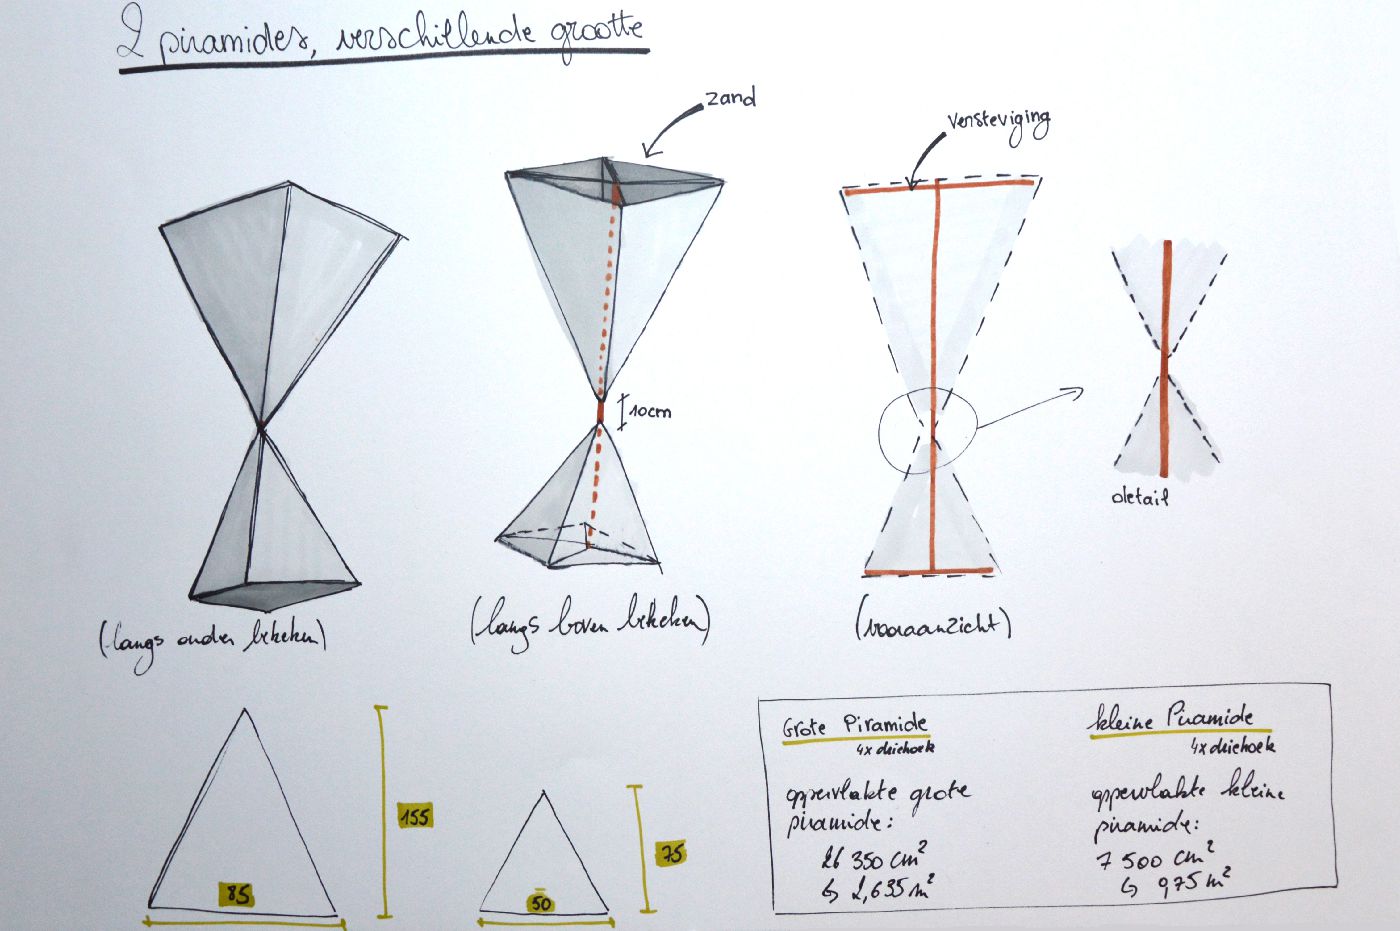 2 piramides, verschillende grootte
zand
versteviging
10cm
detail
(langs onder bekeken)
(langs boven bekeken)
(vooraanzicht)
155
85
75
50
Grote Piramide
4x driehoek
oppervlakte grote
piramide:
26 350 cm²
↳ 2,635 m²
kleine Piramide
4x driehoek
oppervlakte kleine
piramide:
7 500 cm²
↳ 0,75 m²